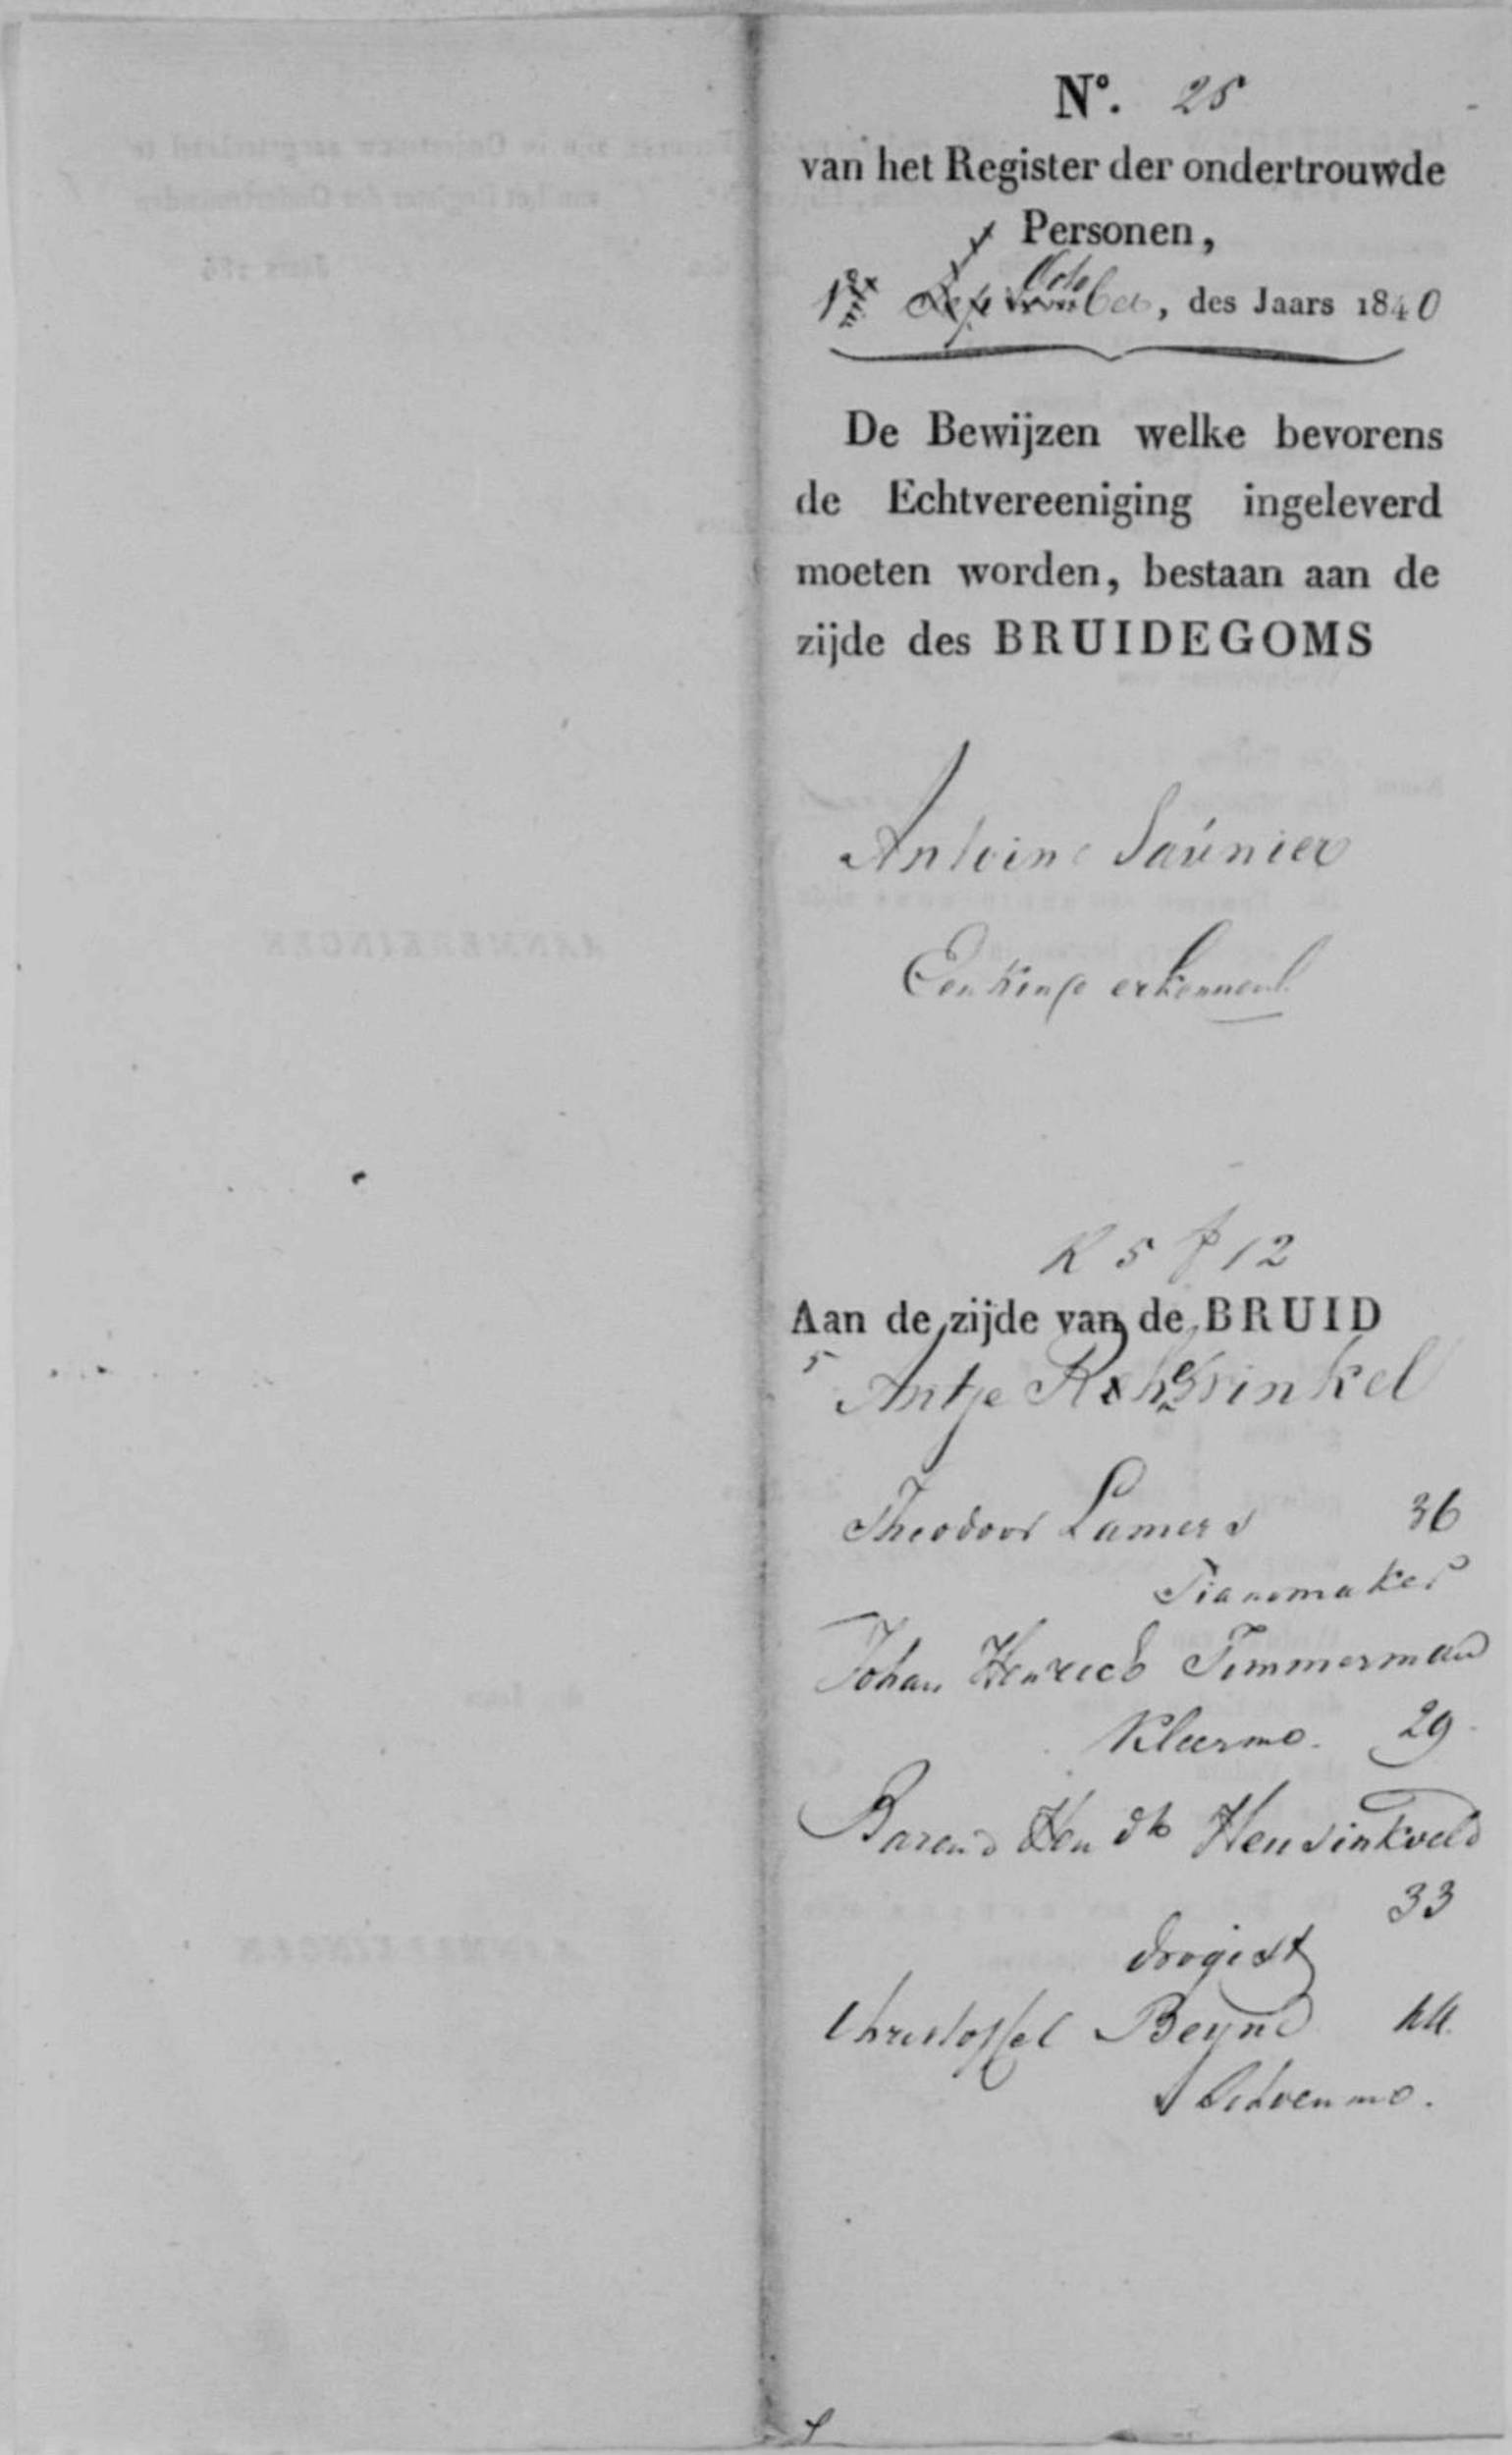 Nº. 25
van het Register der ondertrouwde
Personen,
October, des Jaars 1840
De Bewijzen welke bevorens
de Echtvereeniging ingeleverd
moeten worden, bestaan aan de
zijde des BRUIDEGOMS
Antoine Saunier
Een kind erkennend
K 5 f 12
Aan de zijde van de BRUID
5
Antje
Theodoor Lamers 36
Pianomaker
Johan Henrich Timmerman
Kleermr. 29
Barend Hendk Hensinkveld
33
drogist
Christoffel Beynd 44
Schoenmr.